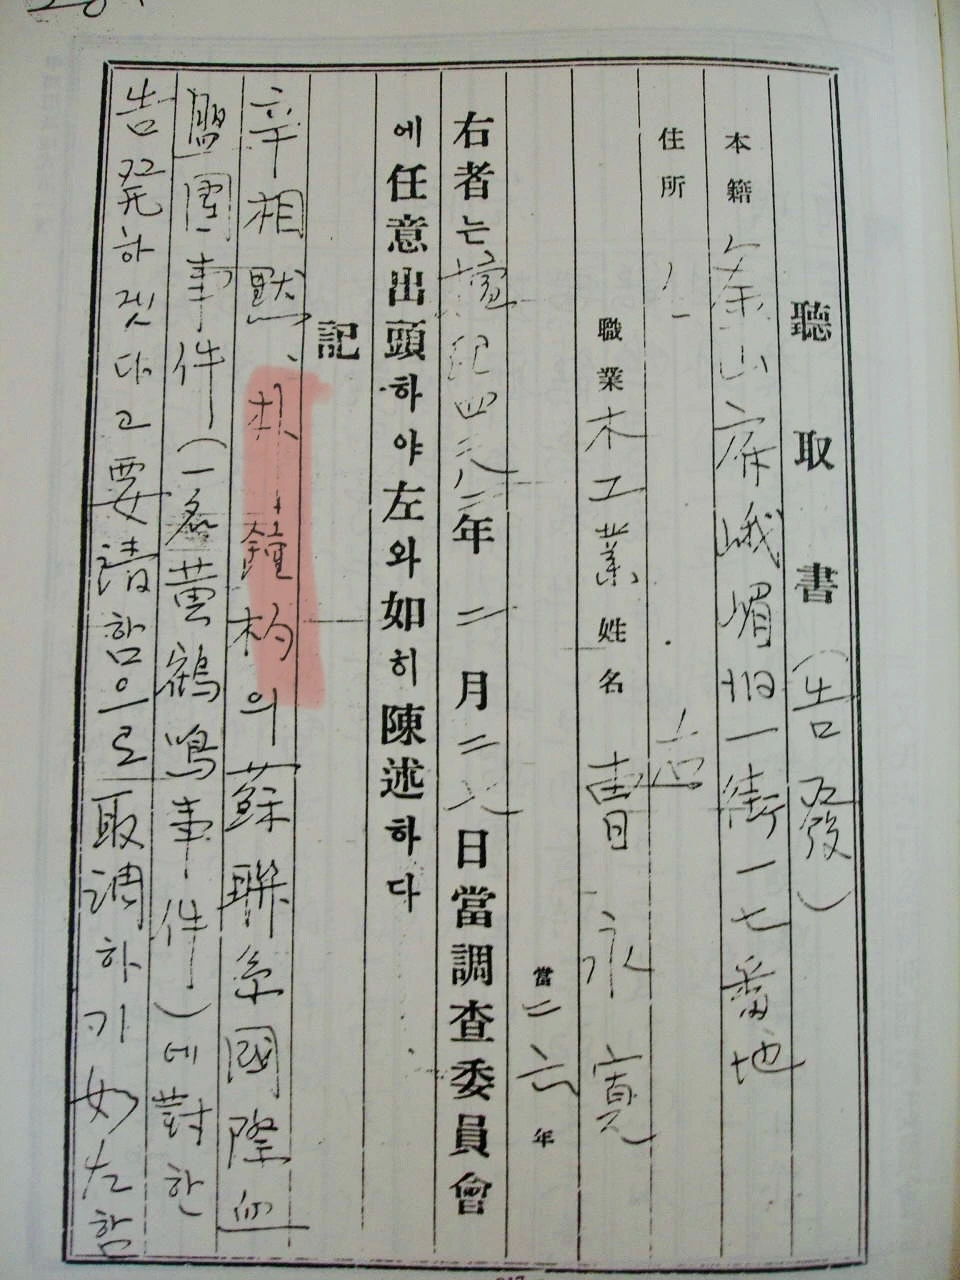 聽取書(告發)
本籍 釜山府峨嵋洞一街一七番地
住所
職業 木工業 姓名 曺永寬
當二六年
右者는檀紀四二八二年二月二八日當調査委員會
에任意出頭하야左와如히陳述하다
記
辛相默、朴鍾杓의蘇聯系國際血
盟團事件(一名黃鶴鳴事件)에對한
告発하겟다고要請함으로取調하기如左함